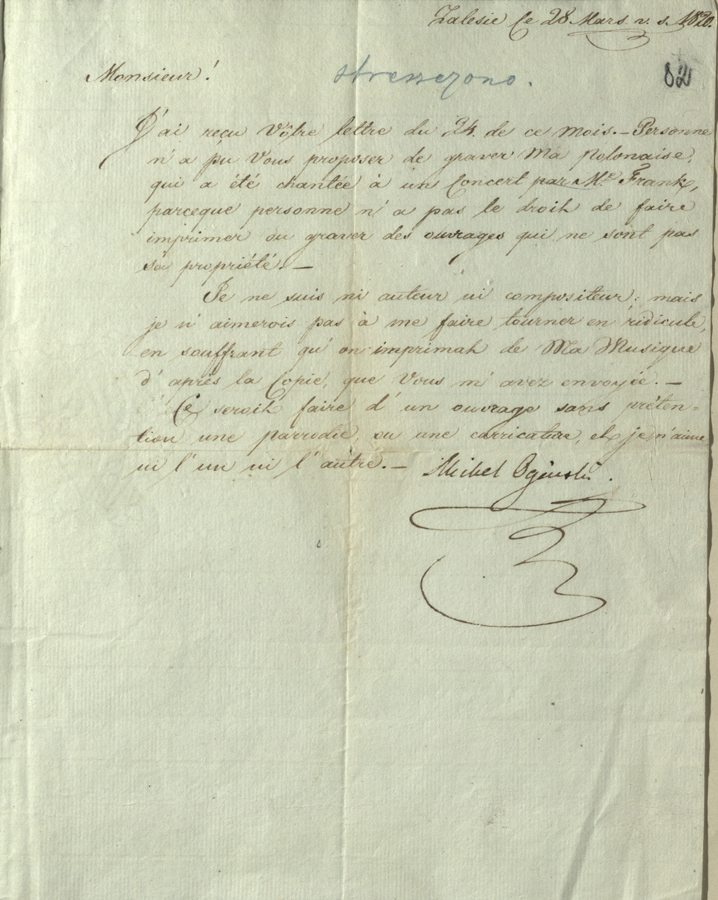 Zalesie le 28 Mars v. s. 1820.
82
Monsieur!
streszczono.
J'ai reçu Vôtre lettre du 24. de ce mois. – Personne
n'a pu Vous proposer de graver Ma Polonaise,
qui a été chantée à un Concert par Mr Frank,
parceque personne n'a pas le droit de faire
imprimer ou graver des ouvrages qui ne sont pas
sa propriété. –
Je ne suis ni auteur ni compositeur; mais
je n'aimerois pas à me faire tourner en ridicule,
en souffrant qu'on imprimat de Ma Musique
d'après la Copie, que Vous m'avez envoyée. –
Ce seroit faire d'un ouvrage sans préten-
tion une parrodie, ou une carricature, et je n'aime
ni l'un ni l'autre. – Michel Oginski.